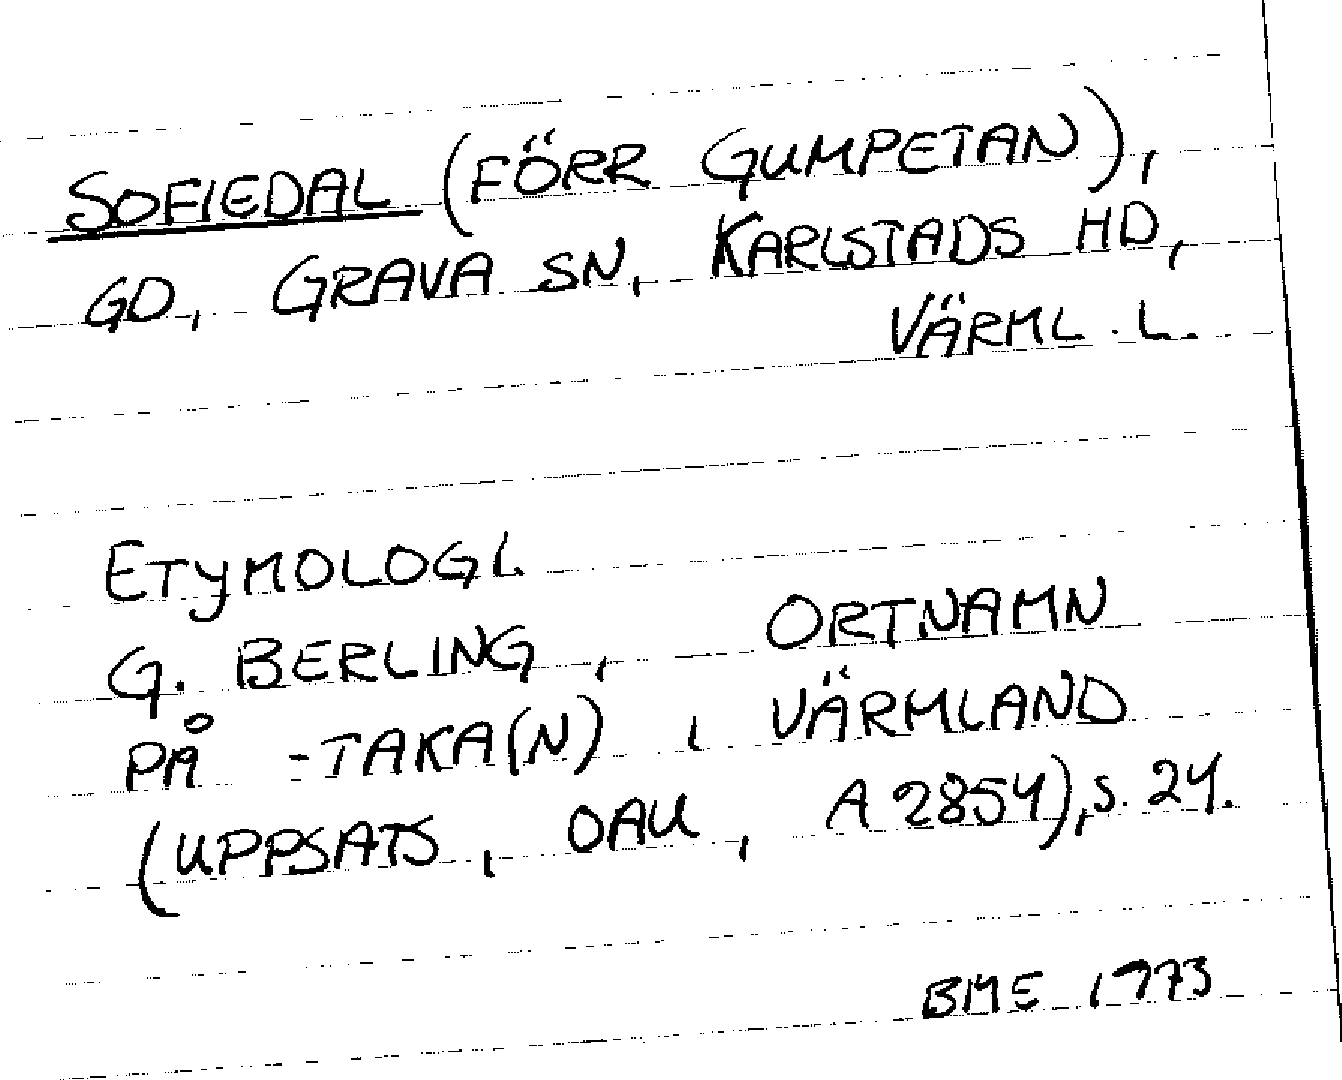 SOFIEDAL (FÖRR GUMPETAN),
GD, GRAVA SN, KARLSTADS HD,
VÄRML. L.
ETYMOLOGI.
G. BERLING, ORTNAMN
PÅ -TAKA(N) I VÄRMLAND
(UPPSATS, OAU, A 2854), S. 24.
BME 1973